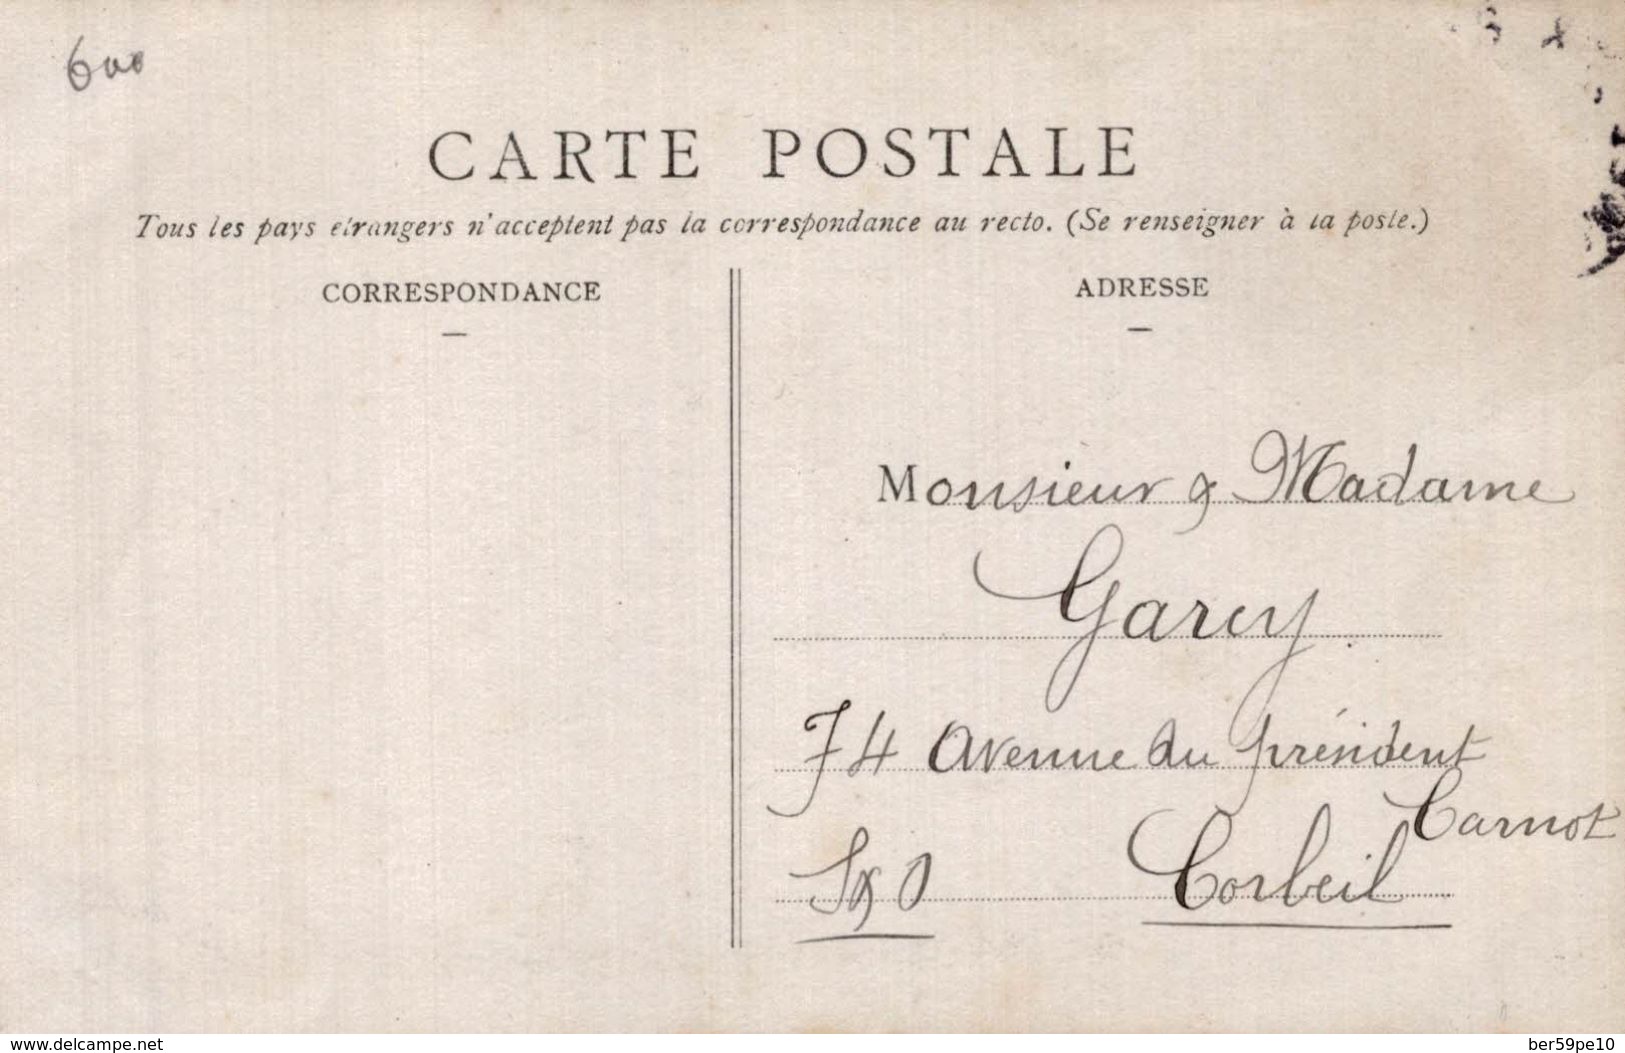 600
CARTE POSTALE
Tous les pays etrangers n'acceptent pas la correspondance au recto. (Se renseigner à la poste.)
CORRESPONDANCE
ADRESSE
Monsieur & Madame
Garcy
74 Avenue du président
Carnot
S & O
Corbeil
www.delcampe.net
ber59pe10